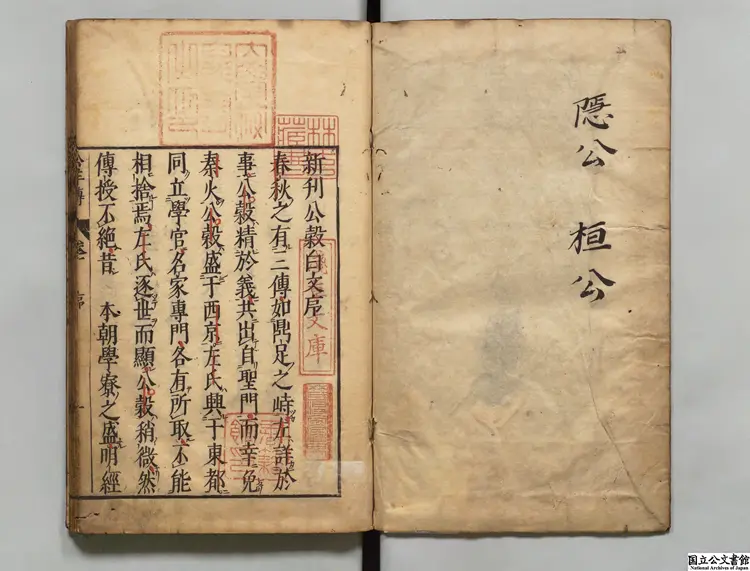 隠公 桓公
新刊公穀白文序
春秋之有三傳如鼎足之峙左詳於
事公穀精於義共出自聖門而幸免
秦火公穀盛于西京左氏興于東都
同立學官名家專門各有所取不能
相捨焉左氏逐世而顯公穀稍微然
傳授不絶昔 本朝學寮之盛明經
林氏藏書
文庫
国立公文書館
National Archives of Japan